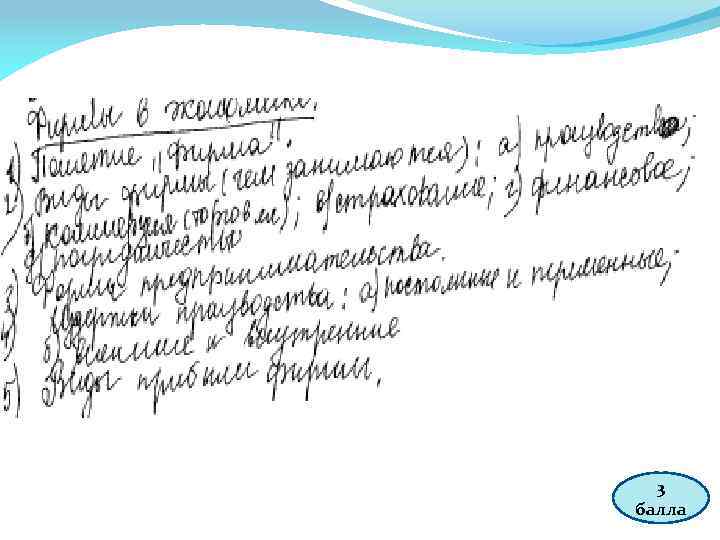 Фирмы в экономике.
1) Понятие "Фирма".
2) Виды фирмы (чем занимаются): а) производство;
б) Коммерция (торговля); в) страхование; г) финансовое;
д) посредничество
3) Формы предпринимательства.
4) Издержки производства: а) постоянные и переменные;
б) Внешние и внутренние
5) Виды прибыли фирмы.
3
балла